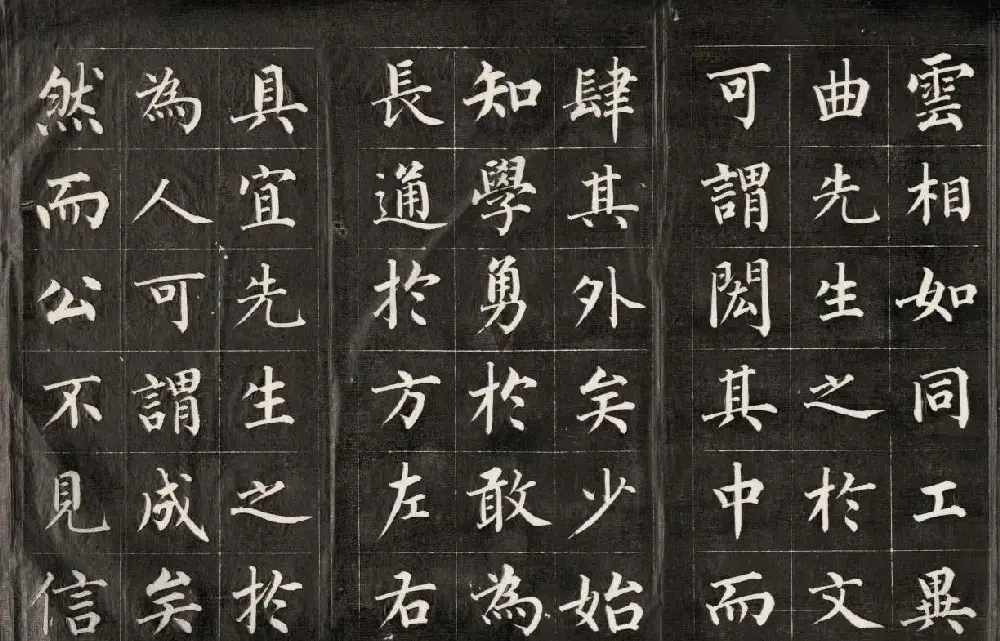 雲相如同工異
曲先生之於文
可謂閎其中而
肆其外矣少始
知學勇於敢為
長通於方左右
具宜先生之於
為人可謂成矣
然而公不見信